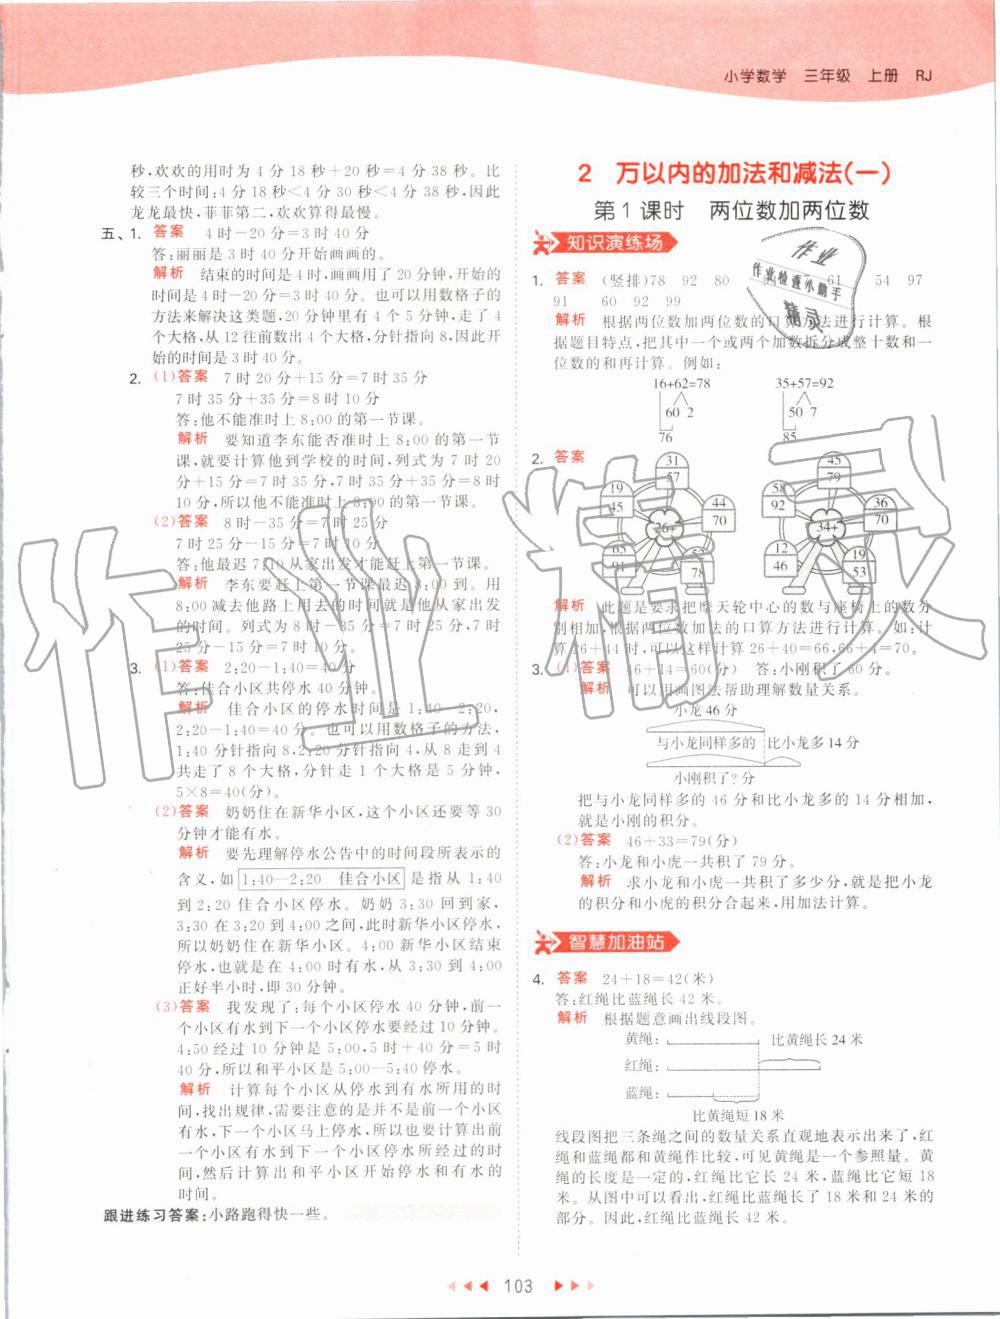 小学数学 三年级 上册 RJ
秒,欢欢的用时为 4 分 18 秒+20 秒=4 分 38 秒。比
较三个时间:4 分 18 秒<4 分 30 秒<4 分 38 秒,因此
龙龙最快,菲菲第二,欢欢算得最慢。
五、1. 答案 4 时-20 分=3 时 40 分
答:丽丽是 3 时 40 分开始画画的。
解析 结束的时间是 4 时,画画用了 20 分,开始的
时间是 4 时-20 分=3 时 40 分。也可以用数格子的
方法来解决这类题,20 分钟里有 4 个 5 分钟,走了 4
个大格,从 12 往前数出 4 个大格,分针指向 8,因此开
始的时间是 3 时 40 分。
2. (1)答案 7 时 20 分+15 分=7 时 35 分
7 时 35 分+35 分=8 时 10 分
答:他不能准时上 8:00 的第一节课。
解析 要知道李东能否准时上 8:00 的第一节
课,就要计算他到学校的时间,列式为 7 时 20
分+15 分=7 时 35 分,7 时 35 分+35 分=8 时
10 分,所以他不能准时上 8:00 的第一节课。
(2)答案 8 时-35 分=7 时 25 分
7 时 25 分-15 分=7 时 10 分
答:他最迟 7:10 从家出发才能赶上第一节课。
解析 李东要赶上第一节课最迟 8:00 到。用
8:00 减去他路上用去的时间就是他从家出发
的时间。列式为 8 时-35 分=7 时 25 分,7 时
25 分-15 分=7 时 10 分。
3. (1)答案 2:20-1:40=40 分
答:佳合小区共停水 40 分钟。
解析 佳合小区的停水时间是 1:40—2:20,
2:20-1:40=40 分。也可以用数格子的方法,
1:40 分针指向 8,2:20 分针指向 4,从 8 走到 4
共走了 8 个大格,分针走 1 个大格是 5 分钟,
5×8=40(分)。
(2)答案 奶奶住在新华小区,这个小区还要等 30
分钟才能有水。
解析 要先理解停水公告中的时间段所表示的
含义,如 1:40—2:20 佳合小区 是指从 1:40
到 2:20 佳合小区停水。奶奶 3:30 回到家,
3:30 在 3:20 到 4:00 之间,此时新华小区停水,
所以奶奶住在新华小区。4:00 新华小区结束
停水,也就是在 4:00 时有水,从 3:30 到 4:00
正好半小时,即 30 分钟。
(3)答案 我发现了:每个小区停水 40 分钟,前一
个小区有水到下一个小区停水要经过 10 分钟。
4:50 经过 10 分钟是 5:00,5 时+40 分=5 时
40 分,所以和平小区是 5:00—5:40 停水。
解析 计算每个小区从停水到有水所用的时
间,找出规律,需要注意的是并不是前一个小区
有水,下一个小区马上停水,所以也要计算出前
一个小区有水到下一个小区停水所经过的时
间,然后计算出和平小区开始停水和有水的
时间。
跟进练习答案:小路跑得快一些。
2 万以内的加法和减法(一)
第 1 课时 两位数加两位数
知识演练场
1. 答案 (竖排)78 92 80 61 54 97
91 60 92 99
解析 根据两位数加两位数的口算方法进行计算。根
据题目特点,把其中一个或两个加数拆分成整十数和一
位数的和再计算。例如:
16+62=78 35+57=92
60 2 50 7
76 85
2. 答案
31 57 19 45 44 70 26+ 65 91 52 78
45 79 58 92 36 70 34+ 12 46 19 53
解析 此题是要求把摩天轮中心的数与座椅上的数分
别相加,根据两位数加法的口算方法进行计算。如:计
算 26+44 时,可以这样计算 26+40=66,66+4=70。
3. (1)答案 46+14=60(分) 答:小刚积了 60 分。
解析 可以用画图法帮助理解数量关系。
小龙 46 分
与小龙同样多的 比小龙多 14 分
小刚积了?分
把与小龙同样多的 46 分和比小龙多的 14 分相加,
就是小刚的积分。
(2)答案 46+33=79(分)
答:小龙和小虎一共积了 79 分。
解析 求小龙和小虎一共积了多少分,就是把小龙
的积分和小虎的积分合起来,用加法计算。
智慧加油站
4. 答案 24+18=42(米)
答:红绳比蓝绳长 42 米。
解析 根据题意画出线段图。
黄绳: 比黄绳长 24 米
红绳:
蓝绳:
比黄绳短 18 米
线段图把三条绳之间的数量关系直观地表示出来了,红
绳和蓝绳都和黄绳作比较,可见黄绳是一个参照量。黄
绳的长度是一定的,红绳比它长 24 米,蓝绳比它短 18
米。从图中可以看出,红绳比蓝绳长了 18 米和 24 米的
部分。因此,红绳比蓝绳长 42 米。
103
作业
作业检查小帮手
精灵
作业精灵